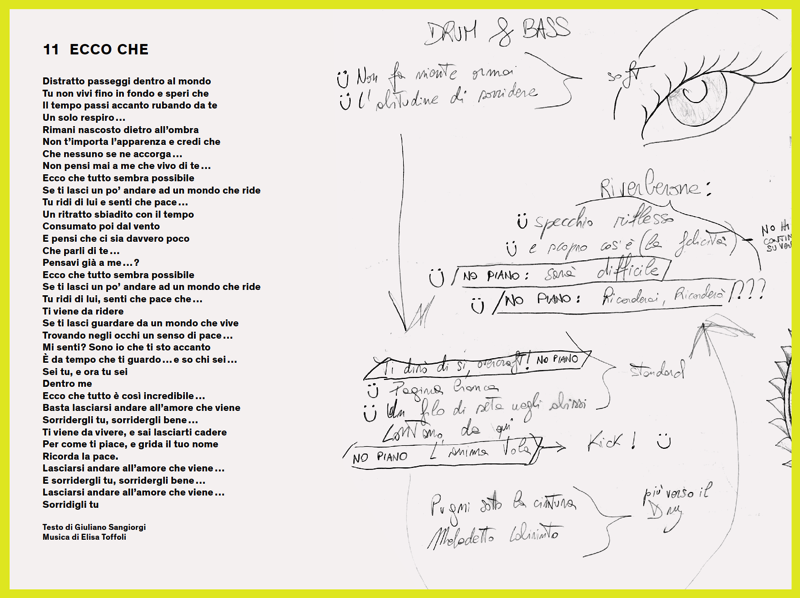 11 ECCO CHE
Distratto passeggi dentro al mondo
Tu non vivi fino in fondo e speri che
Il tempo passi accanto rubando da te
Un solo respiro...
Rimani nascosto dietro all'ombra
Non t'importa l'apparenza e credi che
Che nessuno se ne accorga...
Non pensi mai a me che vivo di te...
Ecco che tutto sembra possibile
Se ti lasci un po' andare ad un mondo che ride
Tu ridi di lui e senti che pace...
Un ritratto sbiadito con il tempo
Consumato poi dal vento
E pensi che ci sia davvero poco
Che parli di te...
Pensavi già a me...?
Ecco che tutto sembra possibile
Se ti lasci un po' andare ad un mondo che ride
Tu ridi di lui, senti che pace che...
Ti viene da ridere
Se ti lasci guardare da un mondo che vive
Trovando negli occhi un senso di pace...
Mi senti? Sono io che ti sto accanto
È da tempo che ti guardo...e so chi sei...
Sei tu, e ora tu sei
Dentro me
Ecco che tutto è così incredibile...
Basta lasciarsi andare all'amore che viene
Sorridergli tu, sorridergli bene...
Ti viene da vivere, e sai lasciarti cadere
Per come ti piace, e grida il tuo nome
Ricorda la pace.
Lasciarsi andare all'amore che viene...
E sorridergli tu, sorridergli bene...
Lasciarsi andare all'amore che viene...
Sorridigli tu
Testo di Giuliano Sangiorgi
Musica di Elisa Toffoli
DRUM & BASS
Non fa niente ormai
L'abitudine di sorridere
soft
Riverberone:
specchio riflesso
e scopro cos'è (la felicità)
NO PIANO: sarà difficile
NO PIANO: Ricorderai, Ricorderò !???
Ti dirò di sì, NO PIANO
Pagina bianca
Un filo di seta negli abissi
Lontano da qui
NO PIANO L'anima vola
standard
Kick!
Pugni sotto la cintura
Maledetto labirinto
più verso il
Dry